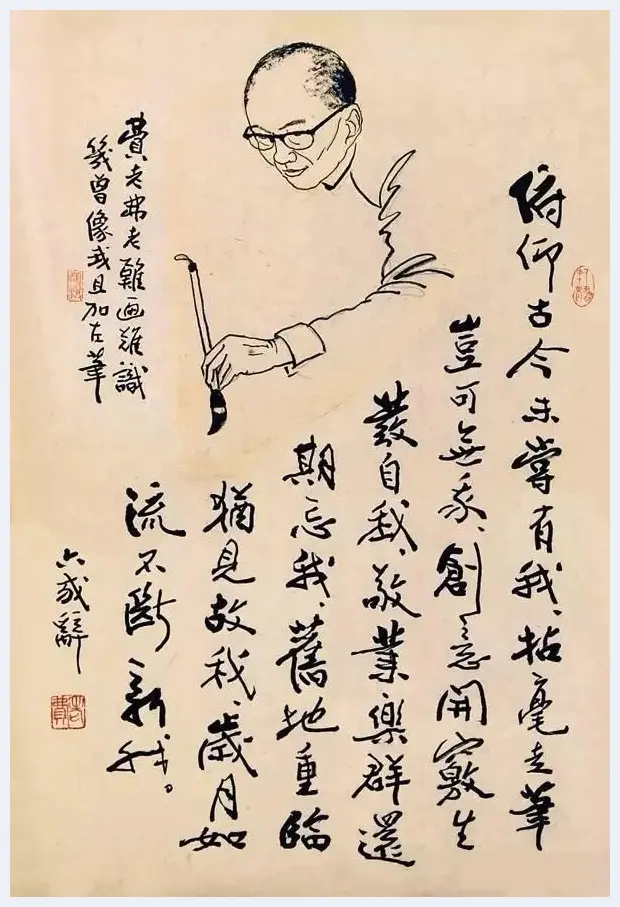 俯仰古今未嘗有我、拈毫走筆
豈可無我、創意開竅生
發自我、敬業樂群還
期忘我、舊地重臨
猶見故我、歲月如
流不斷新我。
六我辭
費老弗老難画難識
幾曾像我且加左筆